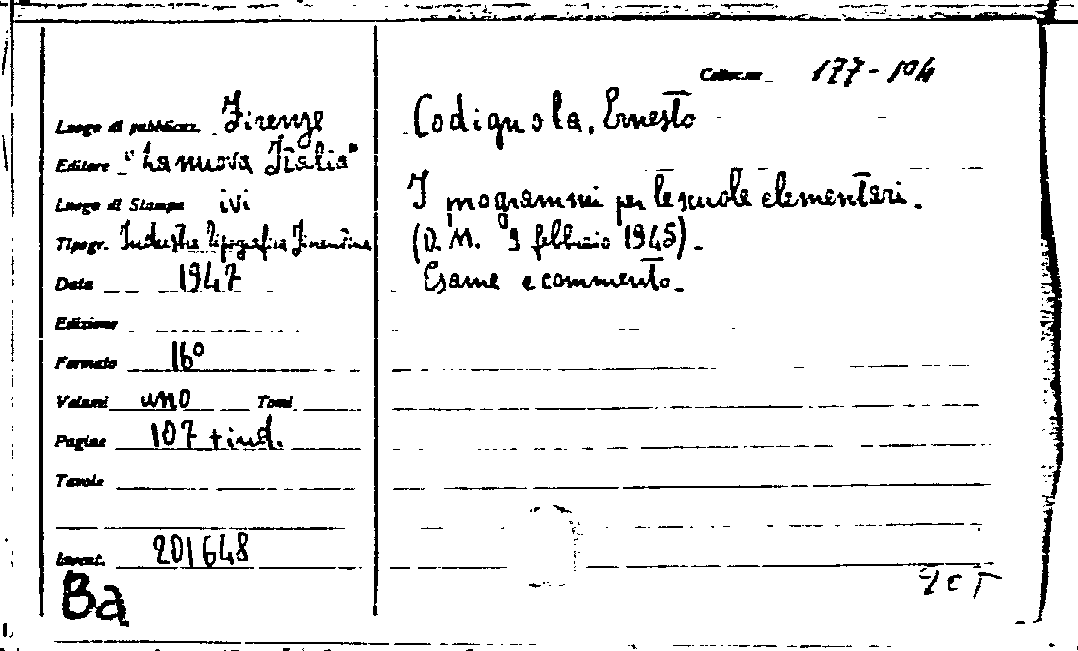 Collocaz. 177-104
Luogo di pubblicaz. Firenze
Editore "La nuova Italia"
Luogo di Stampa ivi
Tipogr. Industria Tipografica Fiorentina
Data 1947
Edizione
Formato 16°
Volumi uno Tomi
Pagine 107 + ind.
Tavole
Invent. 201648
Ba
Codignola, Ernesto
I programmi per le scuole elementari.
(D. M. 9 febbraio 1945).
Esame e commento.